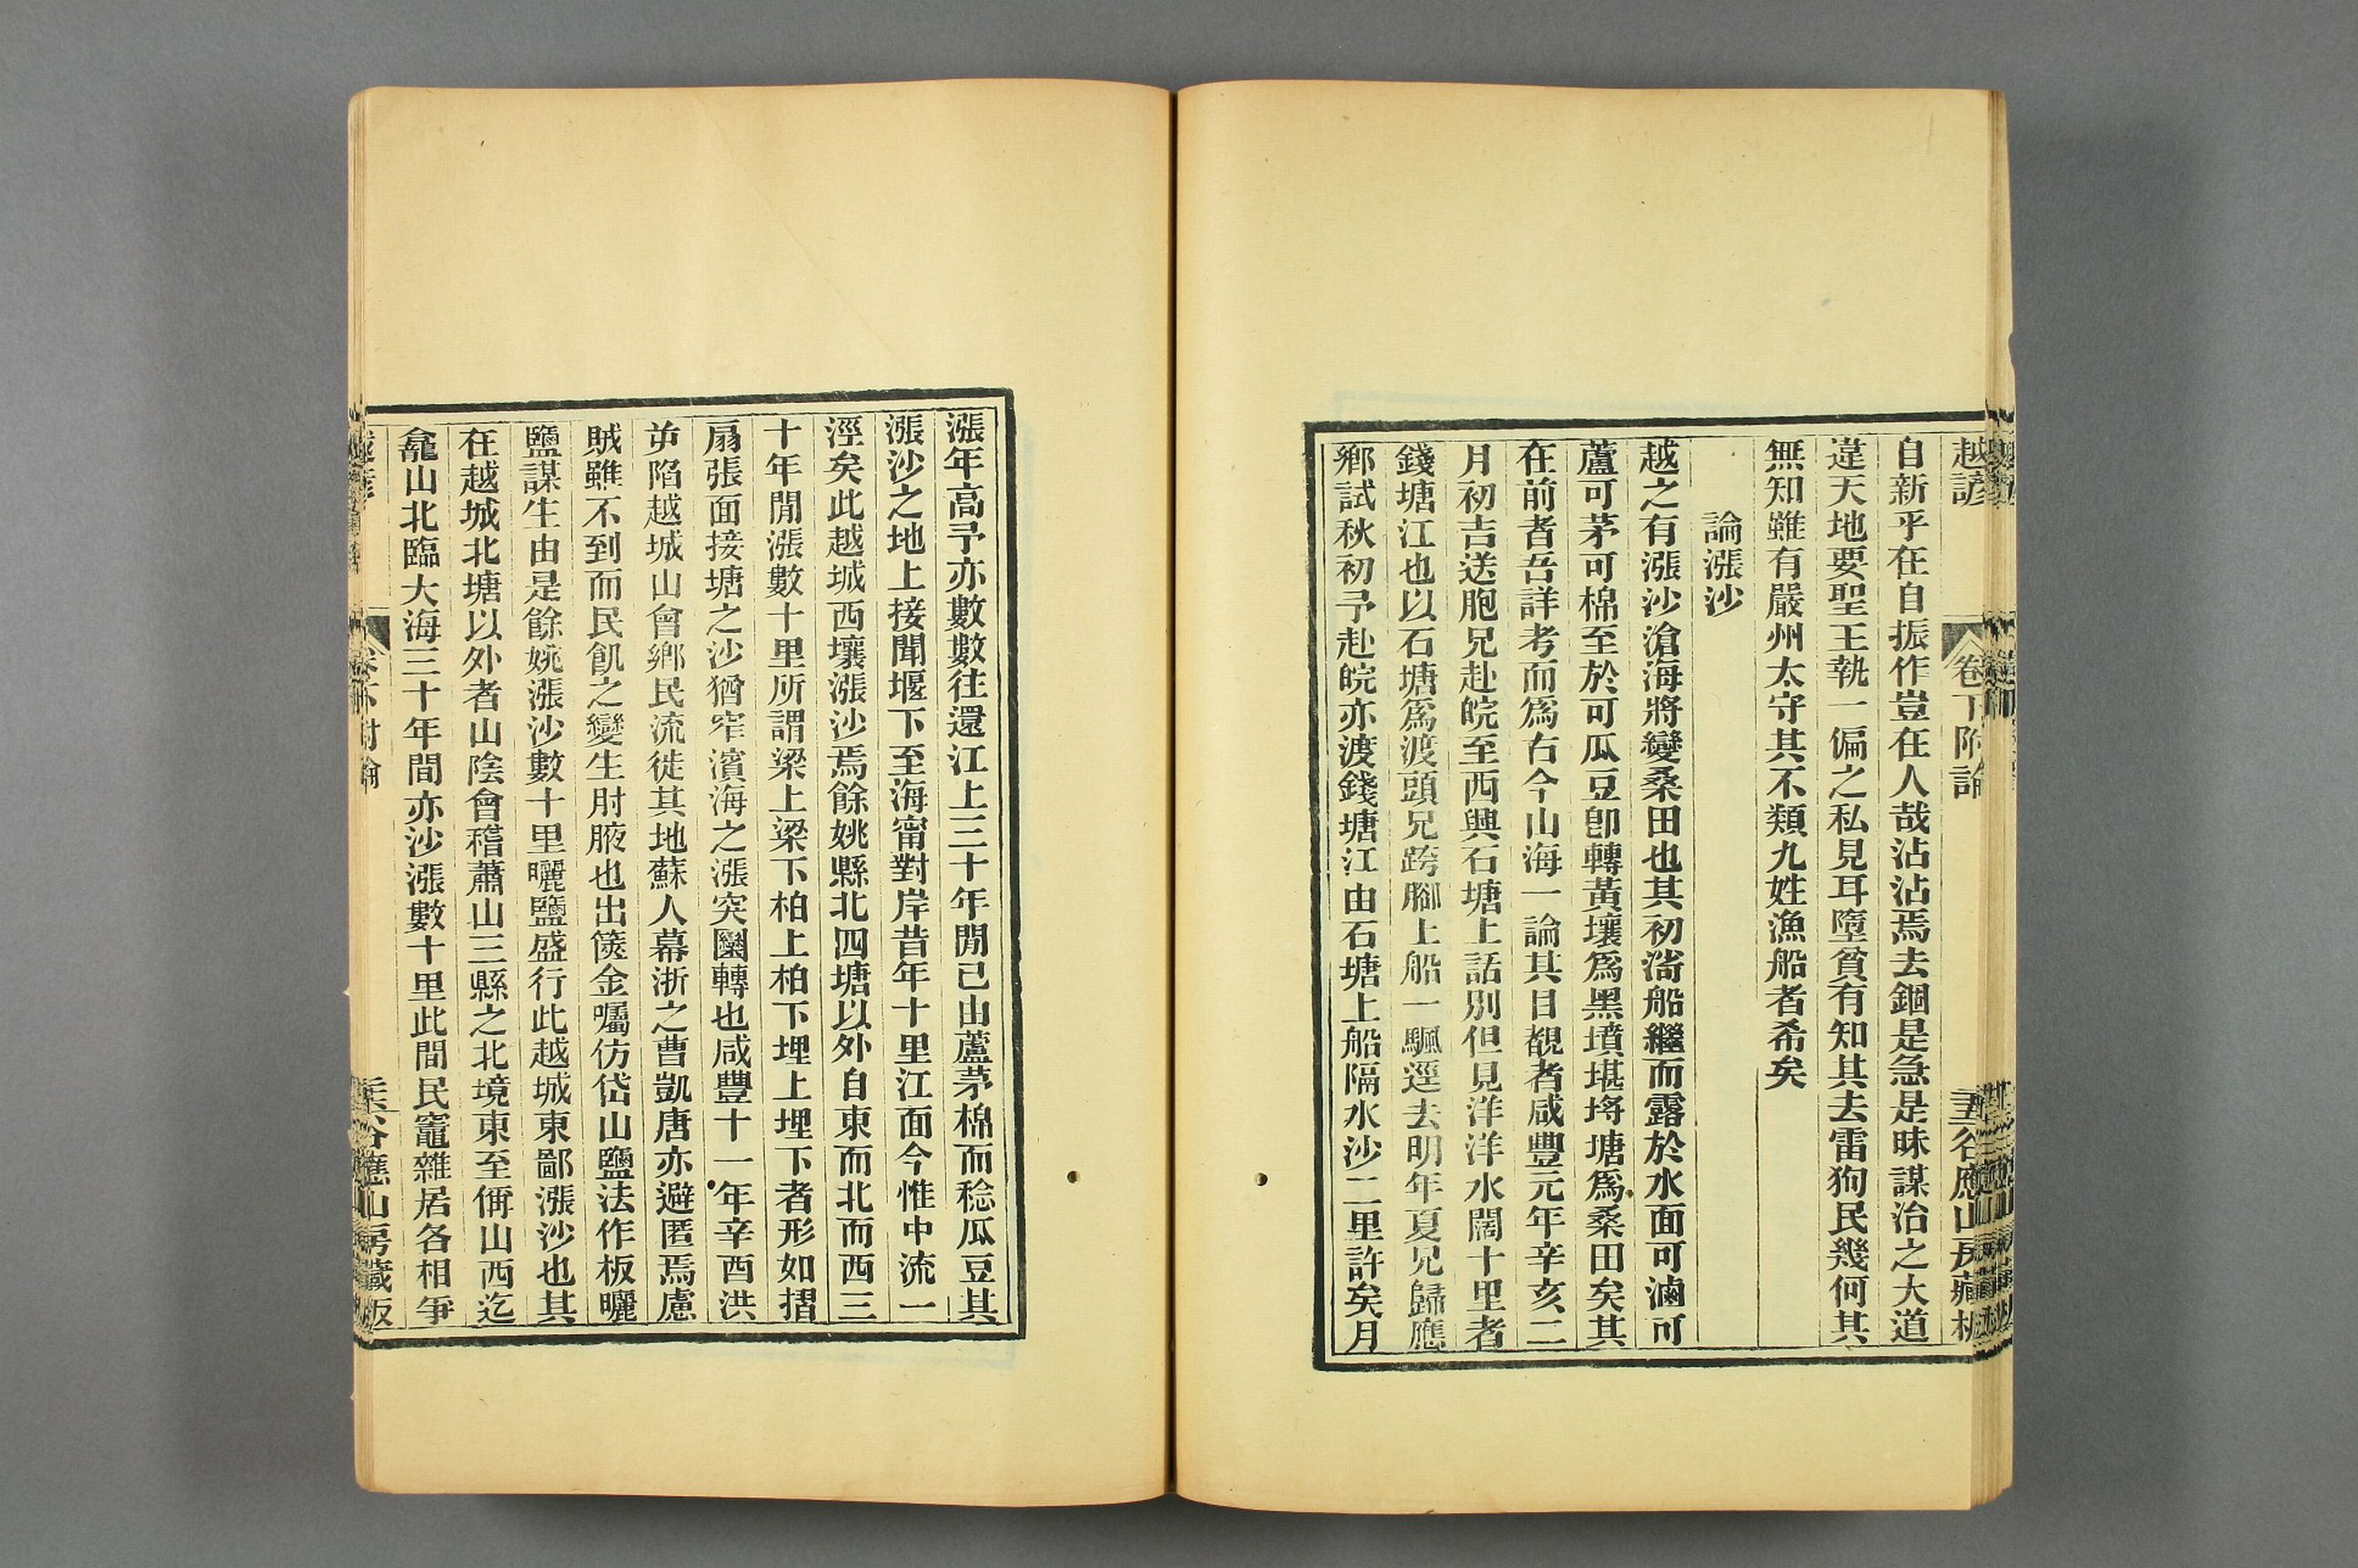 越諺 卷下附論 谷應山房藏板
自新乎在自振作豈在人哉沾沾焉去錮是急是昧謀治之大道
違天地要聖王執一偏之私見耳墮貧有知其去雷狗民幾何其
無知雖有嚴州太守其不類九姓漁船者希矣
論漲沙
越之有漲沙滄海將變桑田也其初淌船繼而露於水面可滷可
蘆可茅可棉至於可瓜豆卽轉黃壤爲黑墳堪垮塘爲桑田矣其
在前者吾詳考而爲右今山海一論其目覩者咸豐元年辛亥二
月初吉送胞兄赴皖至西興石塘上話別但見洋洋水闊十里者
錢塘江也以石塘爲渡頭兄跨腳上船一颿逕去明年夏兄歸應
鄉試秋初予赴皖亦渡錢塘江由石塘上船隔水沙二里許矣月
漲年高予亦數數往還江上三十年閒已由蘆茅棉而稔瓜豆其
漲沙之地上接聞堰下至海甯對岸昔年十里江面今惟中流一
涇矣此越城西壤漲沙焉餘姚縣北四塘以外自東而北而西三
十年閒漲數十里所謂梁上梁下柏上柏下埋上埋下者形如摺
扇張面接塘之沙猶窄濱海之漲突圝轉也咸豐十一年辛酉洪
茆陷越城山會鄉民流徙其地蘇人幕浙之曹凱唐亦避匿焉慮
賊雖不到而民飢之變生肘腋也出篋金囑仿岱山鹽法作板曬
鹽謀生由是餘姚漲沙數十里曬鹽盛行此越城東鄙漲沙也其
在越城北塘以外者山陰會稽蕭山三縣之北境東至偁山西迄
龕山北臨大海三十年間亦沙漲數十里此間民竈雜居各相爭
谷應山房藏板